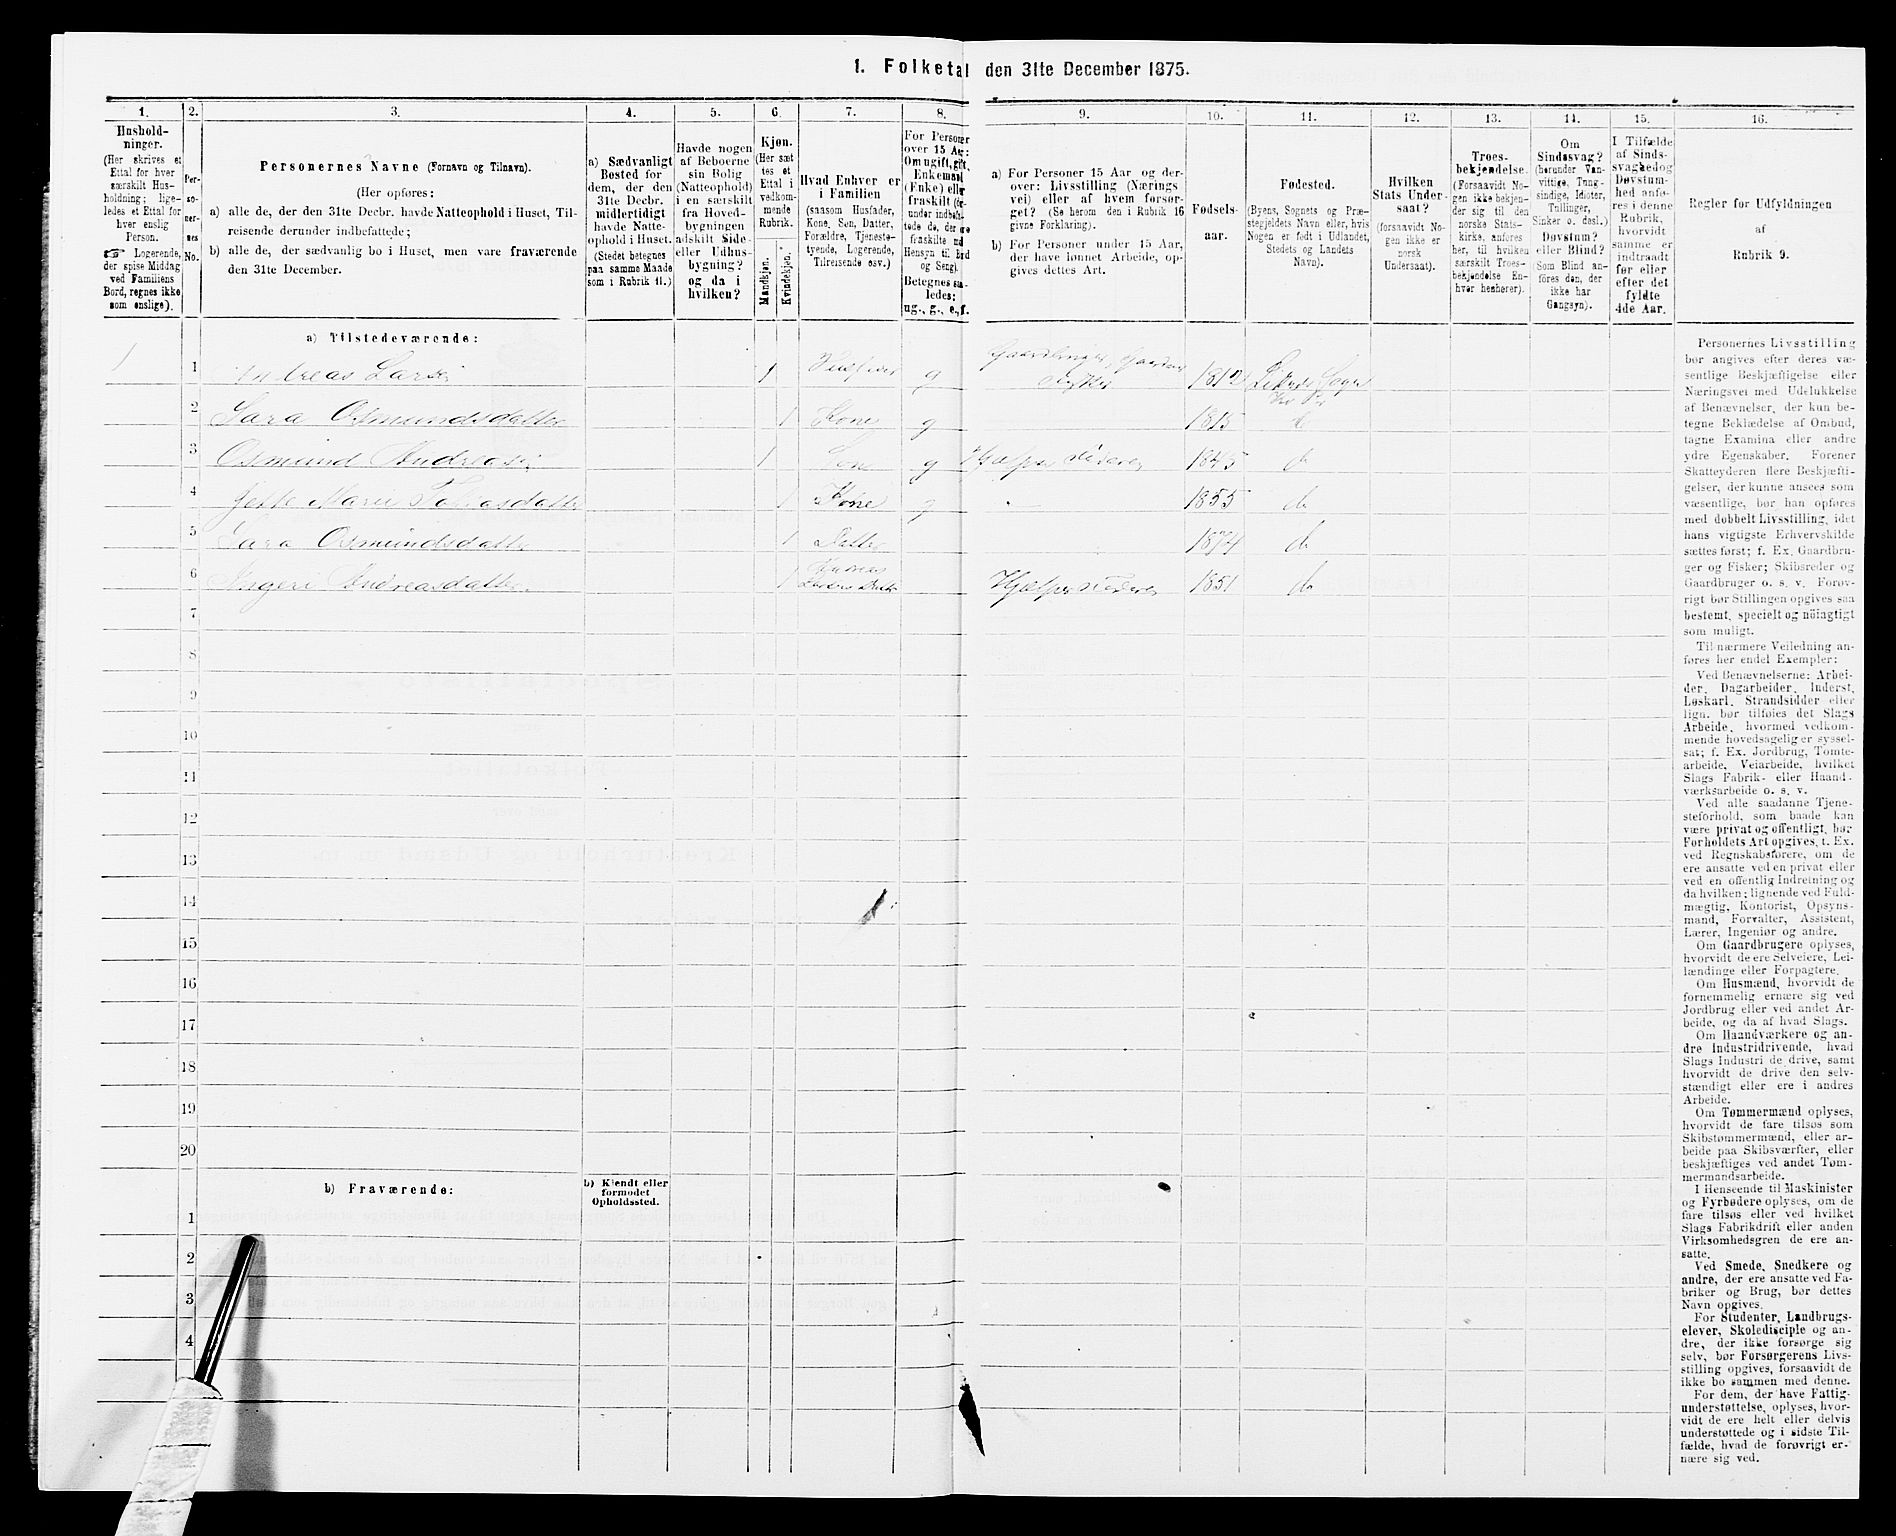 1. Folketal den 31te December 1875.
1.
Hushold-
ninger.
(Her skrives et
Ettal for hver
særskilt Hus-
holdning; lige-
ledes et Ettal for
hver enslig
Person.
Logerende,
der spise Middag
ved Familiens
Bord, regnes ikke
som enslige).
2.
Per-
so-
ner-
nes
No.
3.
Personernes Navne (Fornavn og Tilnavn).
(Her opføres:
a) alle de, der den 31te Decbr. havde Natteophold i Huset, Til-
reisende derunder indbefattede;
b) alle de, der sædvanlig bo i Huset, men vare fraværende
den 31te December.
4.
a) Sædvanligt
Bosted for
dem, der den
31te Decbr.
midlertidigt
havde Natte-
ophold i Huset.
(Stedet betegnes
paa samme Maade
som i Rubrik 11.)
5.
Havde nogen
af Beboerne
sin Bolig
(Natteophold)
i en særskilt
fra Hoved-
bygningen
adskilt Side-
eller Udhus-
bygning?
og da i
hvilken?
6.
Kjøn.
(Her sæt
tes et
Ettal i
vedkom-
mende
Rubrik.
Mandkjøn.
Kvindekjøn.
7.
Hvad Enhver er
i Familien
(saasom Husfader,
Kone, Søn, Datter,
Forældre, Tjeneste-
tyende, Logerende,
Tilreisende osv.)
8.
For Personer
over 15 Aar:
Om ugift, gift,
Enkemand
(Enke) eller
fraskilt
Hensyn til Bord
og Seng).
Betegnes saa-
ledes:
ug., g., e., f.
9.
a) For Personer 15 Aar og der-
over: Livsstilling (Nærings-
vei) eller af hvem forsør-
get? (Se herom den i Rubrik 16
givne Forklaring).
b) For Personer under 15 Aar,
der have lønnet Arbeide, op-
gives dettes Art.
10.
Fødsels-
aar.
11.
Fødested.
(Byens, Sognets og Præ-
stegjeldets Navn eller, hvis
Nogen er født i Udlandet,
Stedets og Landets
Navn).
12.
Hvilken
Stats Under-
saat?
(forsaavidt No-
gen ikke er
norsk
Undersaat).
13.
Troes-
bekjendelse.
(Forsaavidt No-
gen ikke bekjen-
der sig til den
norske Stats-
kirke, anføres
her, til hvilken
særskilt Troes-
bekjendelse En-
hver henhører).
14.
Om
Sindssvag?
(herunder Van-
vittige, Tung-
sindige, Idioter,
Tullinger,
Sinker o. desl.)
Døvstum?
eller Blind?
(Som Blind an-
føres den, der
ikke har
Gangsyn).
15.
I Tilfælde
af Sinds-
svaghed og
Døvstum-
hed anfø-
res i denne
Rubrik,
hvorvidt
samme er
indtraadt
før eller
efter det
fyldte
4de Aar.
16.
Regler for Udfyldningen
af
Rubrik 9.
a) Tilstedeværende:
1 1 Andreas Larsen 1 Husfader g Gaardbruger 1812
2 Sara Osmundsdatter 1 Kone g 1815 do
3 Osmund Andreasen 1 g Hjælper 1845 do
4 Marie Tobiasdatter 1 Kone g 1855 do
5 Sara Osmundsdatter 1 Datter 1874 do
6 Ingeri Andreasdatter 1 Andreas Larsens Datter Hjælper 1851 do
7
8
9
10
11
12
13
14
15
16
17
18
19
20
b) Fraværende:
b) Kjendt eller
formodet
Opholdssted.
1
2
3
4
Personernes Livsstilling
bør angives efter deres væ-
sentlige Beskjæftigelse eller
Næringsvei med Udelukkelse
af Benævnelser, der kun be-
tegne Beklædelse af Ombud,
tagne Examina eller andre
ydre Egenskaber. Forener
Skatteyderen flere Beskjæfti-
gelser, der kunne ansees som
væsentlige, bør han opføres
med dobbelt Livsstilling, idet
hans vigtigste Erhvervskilde
sættes først; f. Ex. Gaardbru-
ger og Fisker; Skibsreder og
Gaardbruger o. s. v. Forøv-
rigt bør Stillingen opgives saa
bestemt, specielt og nöiagtigt
som muligt.
Til nærmere Veiledning an-
føres her endel Exempler:
Ved Benævnelserne: Arbei-
der, Dagarbeider, Inderst,
Løskarl, Strandsidder eller
lign. bør tilføies det Slags
Arbeide, hvormed vedkom-
mende hovedsagelig er syssel-
sat; f. Ex. Jordbrug, Tomte-
arbeide, Veiarbeide, hvilket
Slags Fabrik- eller Haand-
værksarbeide o. s. v.
Ved alle saadanne Tjene-
steforhold, som baade kan
være privat og offentligt, bør
Forholdets Art opgives, t. Ex.
ved Regnskabsførere, om de
ere ansatte ved en privat eller
ved en offentlig Indretning og
da hvilken; lignende ved Fuld-
mægtig, Kontorist, Opsyns-
mand, Forvalter, Assistent,
Lærer, Ingeniør og andre.
Om Gaardbrugere oplyses,
hvorvidt de ere Selveiere, Lei-
lændinge eller Forpagtere.
Om Husmænd, hvorvidt de
fornemmelig ernære sig ved
Jordbrug eller ved andet Ar-
beide, og da af hvad Slags.
Om Haandværkere og an-
dre Industridrivende, hvad
Slags Industri de drive, samt
hvorvidt de drive den selv-
stændigt eller ere i andres
Arbeide.
Om Tømmermænd oplyses,
hvorvidt de fare tilsøs som
Skibstømmermænd, eller ar-
beide paa Skibsværfter, eller
beskjæftiges ved andet Tøm-
mermandsarbeide.
I Henseende til Maskinister
og Fyrbødere oplyses, om de
fare tilsøs eller ved hvilket
Slags Fabrikdrift eller anden
Virksomhedsgren de ere an-
satte.
Ved Smede, Snedkere og
andre, der ere ansatte ved Fa-
briker og Brug, bør dettes
Navn opgives.
For Studenter, Landbrugs-
elever, Skoledisciple og an-
dre, der ikke forsørge sig
selv, bør Forsørgerens Livs-
stilling opgives, forsaavidt de
ikke bo sammen med denne.
For dem, der have Fattig-
understøttelse, oplyses, hvor-
vidt de ere helt eller delvis
understøttede og i sidste Til-
fælde, hvad de forøvrigt er-
nære sig ved.